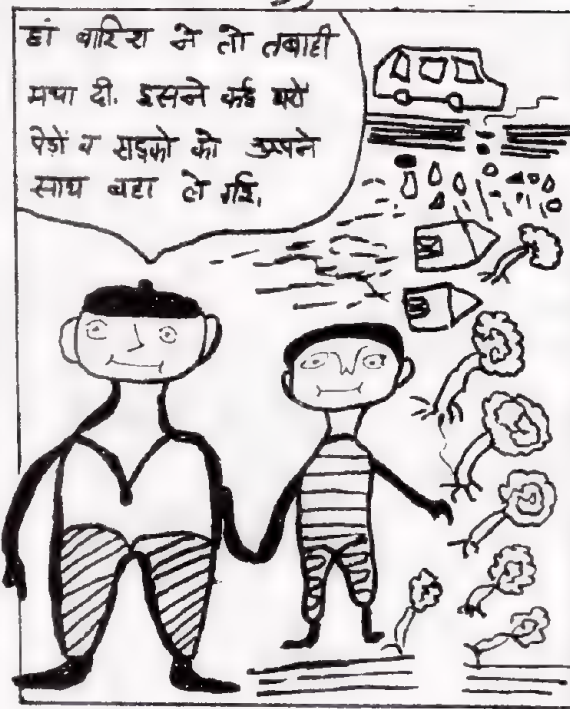 हां बारिश ने तो तबाही
मचा दी. इसने कई घरों
पेड़ों व सड़को को अपने
साथ बहा ले गई.